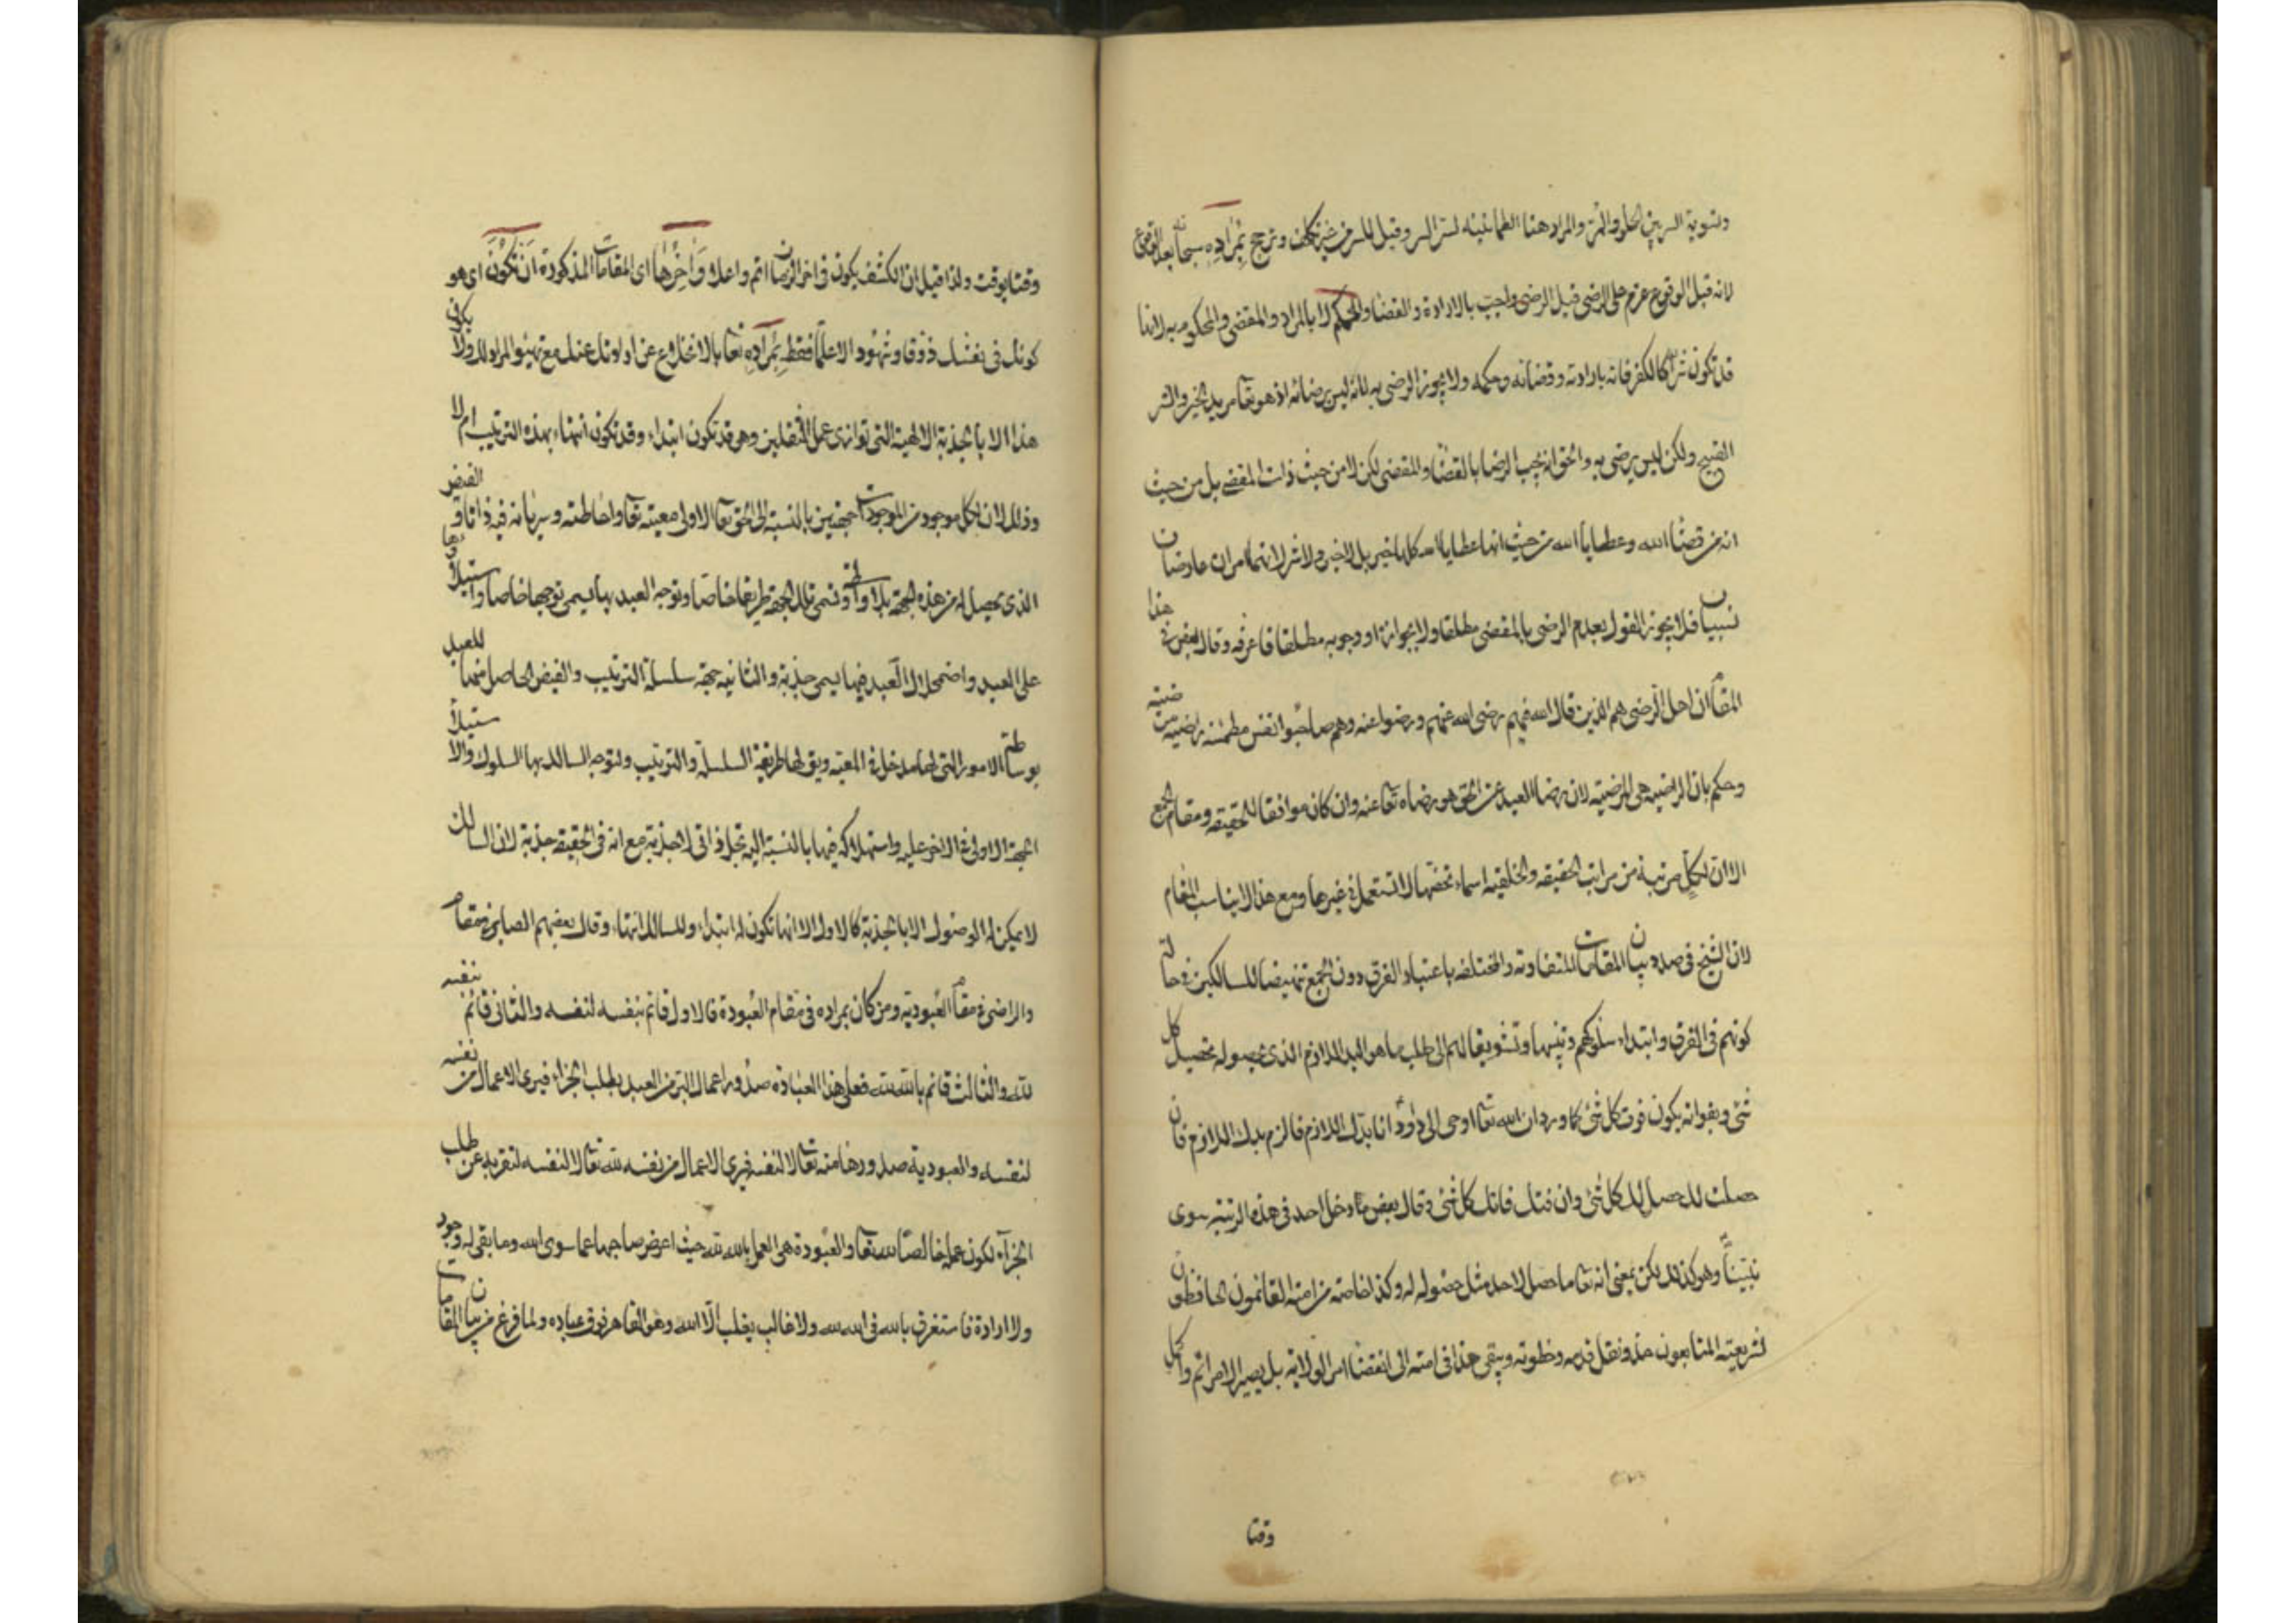 وتسوية السر بين الحلو والمر والمراد هنا الطمانينة لستر السر وقيل للسر من غير تكلف وترجح بمراده سبحانه بعد الوقوع
لانه قبل الوقوع عزم على الرضى قبل الرضى واجب بالارادة والقضا والحكم لا بالمراد والمقضى والمحكوم به لانها
قد تكون شرا كالكفر فانه بارادته وقضائه وحكمه ولا يجوز الرضى به لانه ليس برضائه اذ هو تعا مريد الخير والشر
القبيح ولكن ليس يرضى به والحق انه يجب الرضا بالقضا والمقضى لكن لا من حيث ذات المقضى بل من حيث
انه من قضا الله وعطايا الله من حيث انها عطايا الله كلها خير بل لا خير ولا شر لانهما امران عارضان
نسبيان فلا يجوز القول بعدم الرضى بالمقضى مطلقا ولا بجوازه او وجوبه مطلقا فاعرفه وقال بعض فى هذا
المقام ان اهل الرضى هم الذين قال الله فيهم رضى الله عنهم ورضوا عنه وهم صاحبوا نفس مطمئنة راضية مرضية
وحكم بان الراضية هى المرضية لان رضا العبد عن الحق هو رضاه تعا عنه وان كان موافقا للحقيقة ومقام الجمع
الا ان لكل مرتبة من مراتب الحقيقه والخلقيه اسماء تخصها لا تستعمل فى غيرها ومع هذا لا يناسب المقام
لان الشيخ فى صدد بيان المقامات المتفاوته والمختلفه باعتبار الفرق دون الجمع تنهيضا للسالكين فى حالة
كونهم فى الفرق وابتداء سلوكهم وتنبيها وتشويقا لهم الى طلب ما هو البد اللازم الذى بحصوله يحصل كل
شئ وبفواته يكون فوت كل شئ كما ورد ان الله تعا اوحى الى داود انا بدك اللازم فالزم بدك اللازم فان
حصلت لك حصل لك كل شئ وان فتك فاتك كل شئ وقال بعض ما دخل احد فى هذه الرتبة سوى
نبينا وهو كذلك لكن بمعنى انه تعا ما حصل لاحد مثل حصوله له وكذا خاصته من امته القائمون الحافظون
لشريعته المتابعون حذو نقل قدمه وخطوته ويبقى هذا فى امته الى انقضا امر الولاية بل يصير الامر اتم واكمل
وقتا
وقتا بوقت ولذا قيل ان الكشف يكون فى اخر الزمان اتم واعلا وآخرها اى المقامات المذكورة ان تكون اى هو
كونك فى نفسك ذوقا وشهودا لا علما فقط بمراده تعا بالانخلاع عن ارادتك عنك مع تهيئوا المراد لك ولا يكون
هذا الا بالجذبة الالهية التى توازى عمل الثقلين وهى قد تكون ابتداء وقد تكون انتهاء بهذه الترتيب ام لا
وذلك لان لكل موجود من الموجودات جهتين بالنسبة الى الحق تعا الاولى معيته تعا واحاطته وسريانه فيه ذاتا والفيض
الذى يحصل له من هذه الجهة بلا واسطة وتسمى تلك الجهة طريقا خاصا وتوجه العبد بها يسمى توجها خاصا واستيلاؤها
على العبد واضمحلال العبد فيها يسمى جذبة والثانية جهة سلسلة الترتيب والفيض الحاصل منها للعبد
بوساطة الامور التى لها مدخل فى المعية ويق لها طريقة السلسلة والترتيب ولتوجه السالك بها السلوك والاستيلاء
الجهة الاولى فى الاخر عليه واستهلاكه فيها بالنسبة اليه تجل ذاتى لا جذبة مع انه فى الحقيقة جذبة لان السالك
لا يمكن له الوصول الا بالجذبة كالاول الا انها تكون له ابتداء وللسالك انتهاء وقال بعضهم الصابر فى مقام
والراضى فى مقام العبودية ومن كان بمراده فى مقام العبودة فالاول قائم بنفسه لنفسه والثانى قائم بنفسه
لله والثالث قائم بالله لله فعلى هذا العبادة صدور اعمال البر من العبد بطلب الجزاء فيرى الاعمال من نفسه
لنفسه والعبودية صدورها منه تعا لا لنفسه فيرى الاعمال من نفسه لله تعا لا لنفسه لتفريده عن طلب
الجزآء لكون عمله خالصا لله تعا والعبودة هى العمل بالله لله حيث اعرض صاحبها عما سوى الله وما بقى له وجود
ولا ارادة فاستغرق بالله فى الله لله ولا غالب يغلب الا الله وهو القاهر فوق عباده ولما فرغ من بيان المقامات